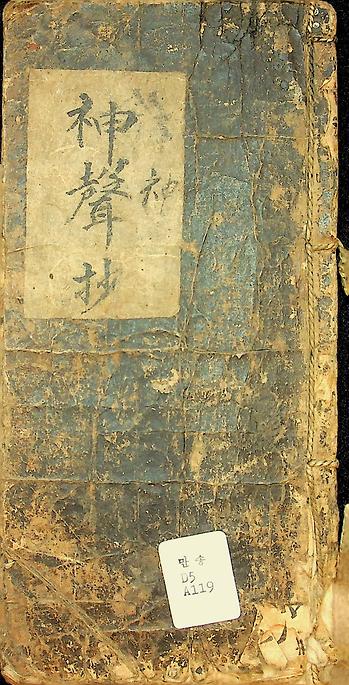 神聲抄
神
만송
D5
A119